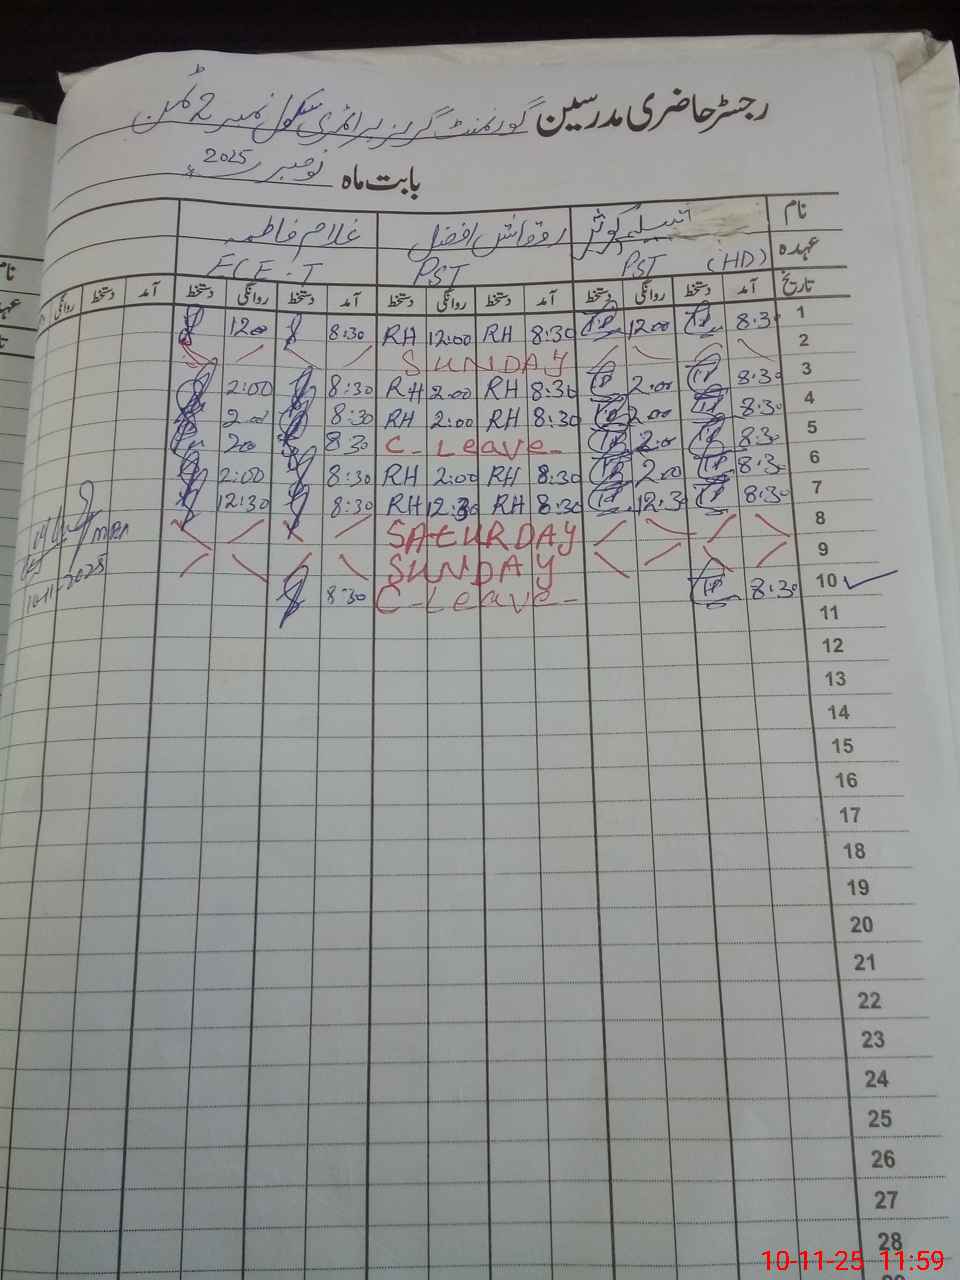 رجسٹر حاضری مدرسین گورنمنٹ گرلز پرائمری سکول نمبر 2 ٹمن
بابت ماہ نومبر 2025ء
نام تسلیم کوثر افضل غلام فاطمہ
عہدہ PST (HD) PST ECE-T
تاریخ آمد دستخط روانگی دستخط آمد دستخط روانگی دستخط آمد دستخط روانگی دستخط آمد دستخط روانگی
1 8:30 12:00 8:30 RH 12:00 RH 8:30 1200
2 SUNDAY
3 8:30 2:00 8:30 RH 2:00 RH 8:30 2:00
4 8:30 2:00 8:30 RH 2:00 RH 8:30 200
5 8:30 2:00 C-Leave- 8:30 200
6 8:30 2:00 8:30 RH 2:00 RH 8:30 2:00
7 8:30 12:30 8:30 RH 12:30 RH 8:30 12:30
8 SATURDAY
9 SUNDAY
10 8:30 C-Leave- 8:30
11
12
13
14
15
16
17
18
19
20
21
22
23
24
25
26
27
28
10-11-2025
10-11-25 11:59